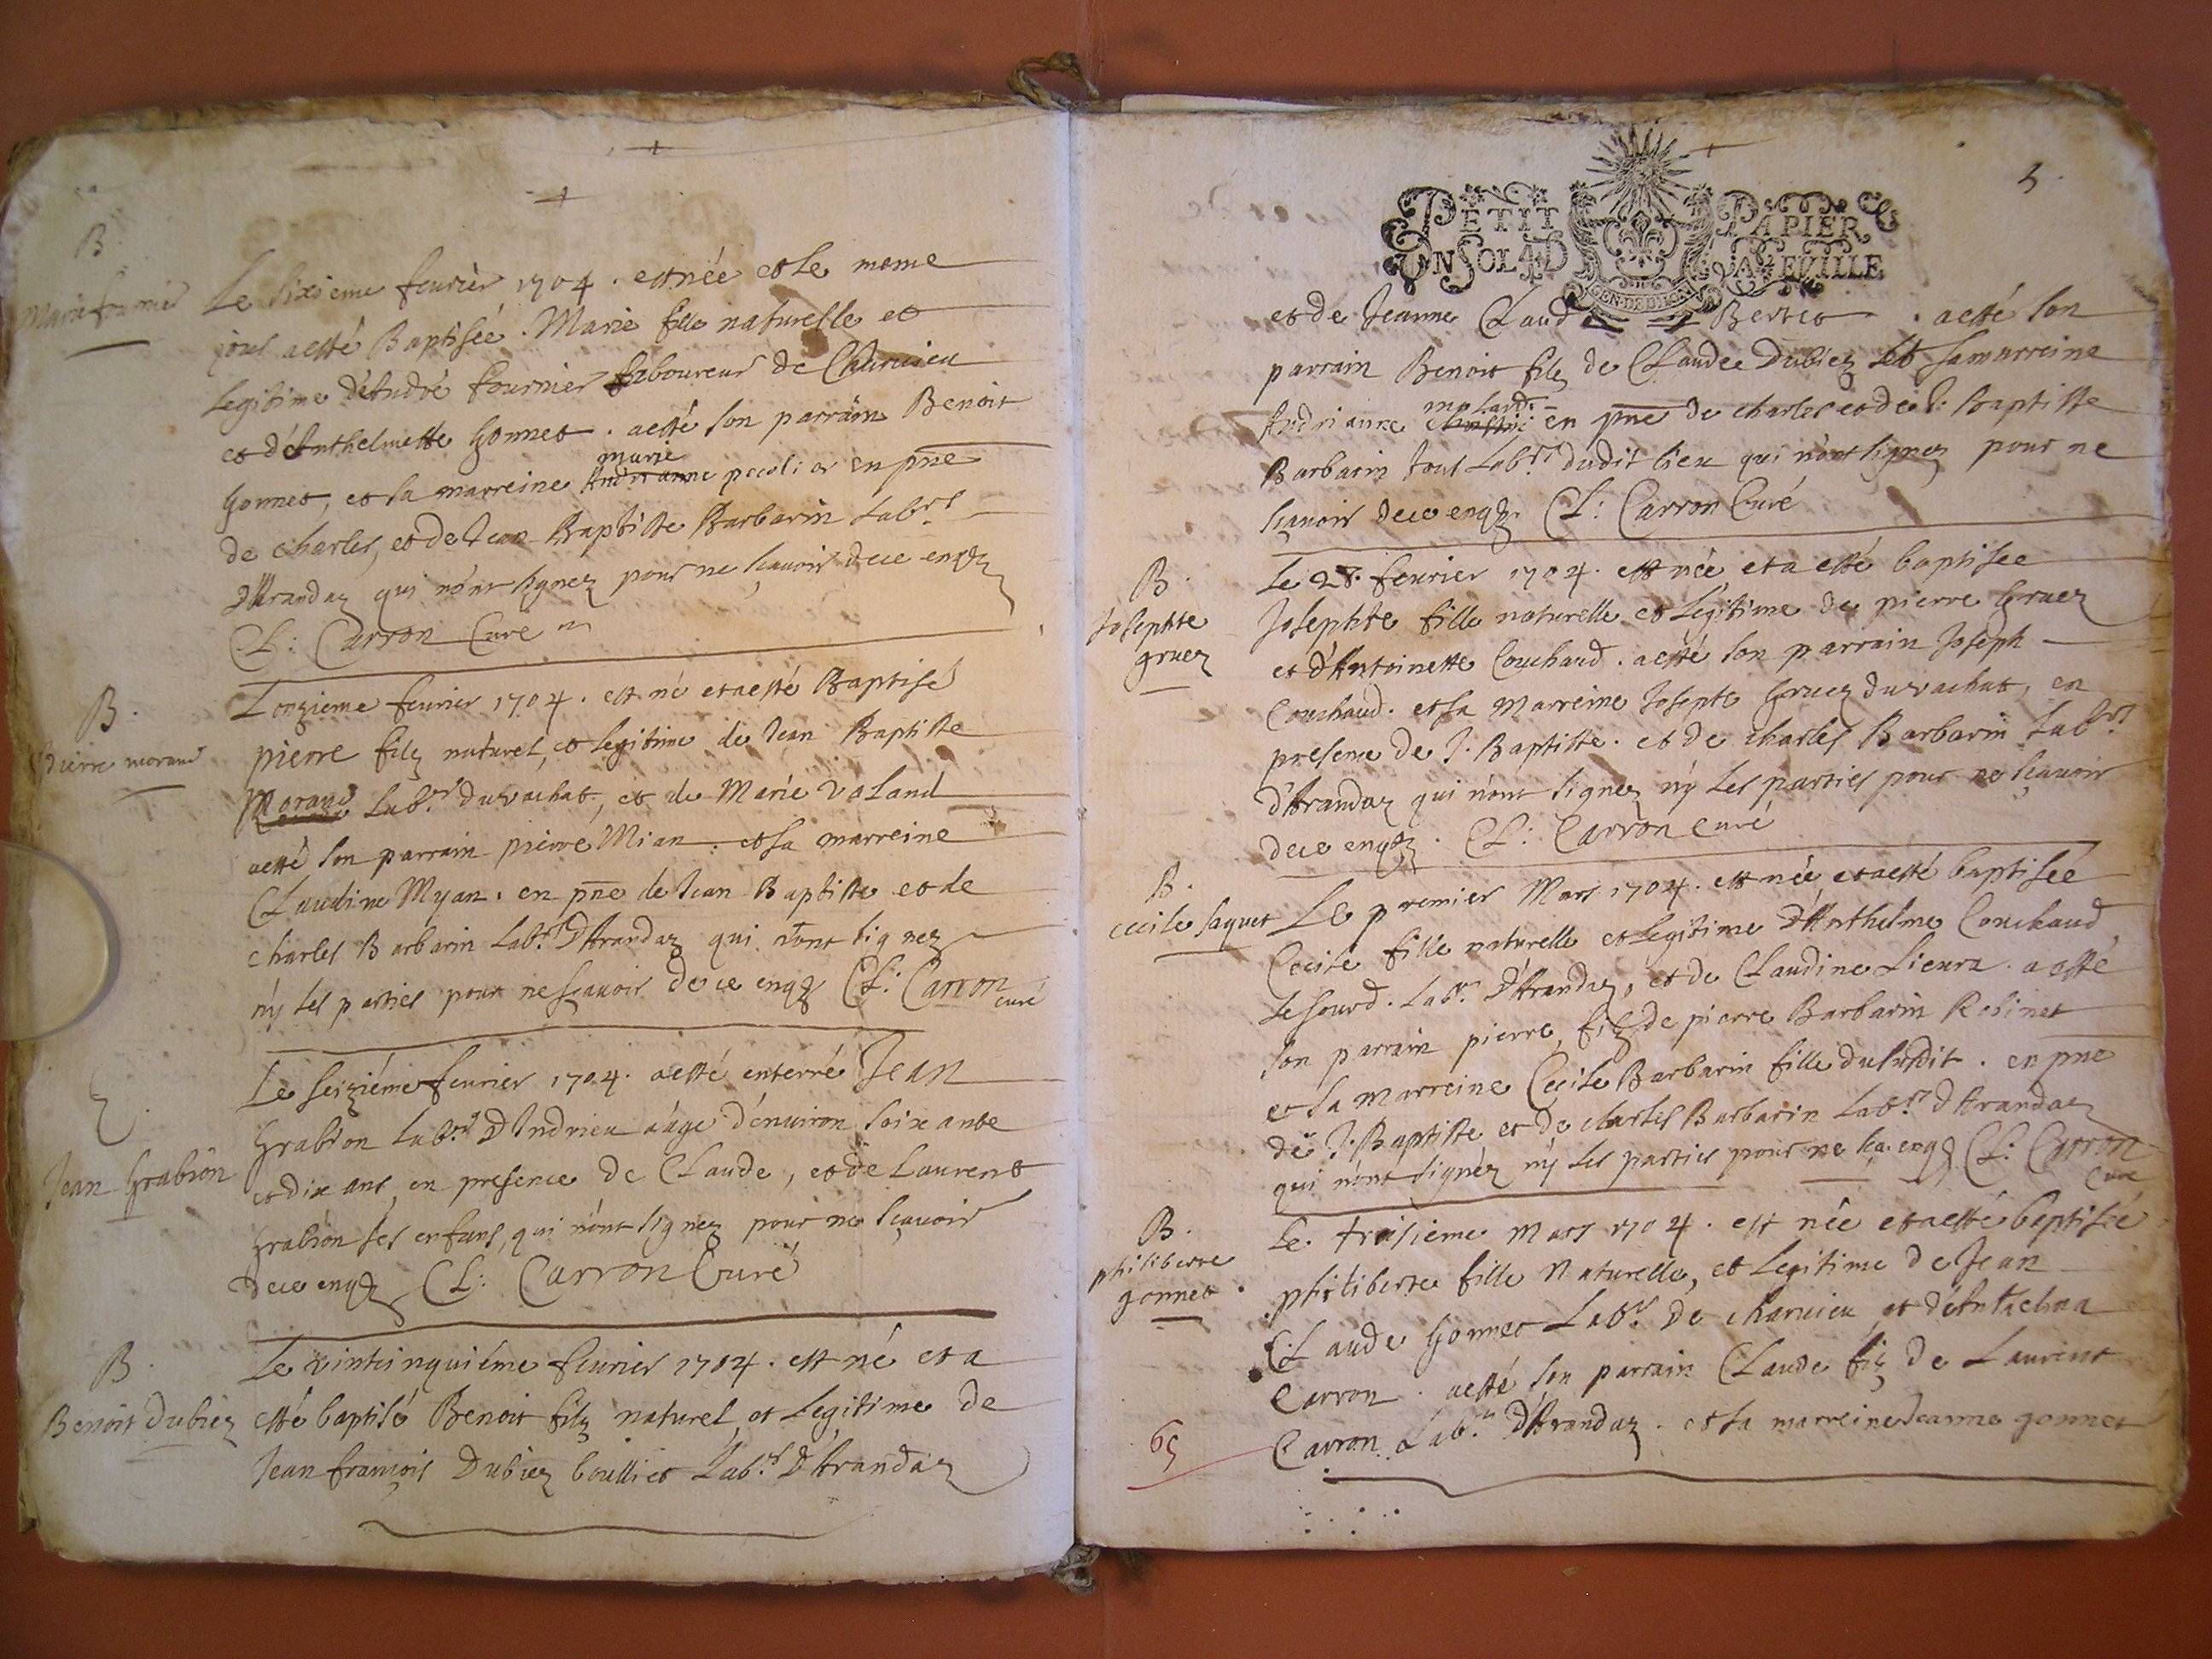 B.
Marie fournier
Le sixieme feurier 1704. est née et le meme
jour a esté Baptisée. Marie fille naturelle et
legitime d'André fournier laboureur de Charuieu
et d'Anthelmette Gonnet. a esté son parrain Benoit
marie
Gonnet, et sa marreine Andrianne pecolier en pn̄e
de charles, et de Jean Baptiste Barbarin Labrs
d'Arandaz qui n'ont signez pour ne sçauoir de ce enqz
Cl: Carron Curé
B.
pierre morand
L'onzieme feurier 1704. est né et a esté Baptisé
pierre filz naturel, et legitime de Jean Baptiste
Morand Labr duvachat, et de Marie voland
a esté son parrain pierre Mian. et sa marreine
Claudine Myan. en pn̄e de Jean Baptiste et de
charles Barbarin Labrs d'Arandaz qui n'ont signez
n'y les parties pour ne sçauoir de ce enqz Cl: Carron
curé
E.
Jean Grabion
Le seiziéme feurier 1704. a esté enterré Jean
Grabion Labr d'Indrieu aagé d'enuiron soixante
et dix ans, en presence de Claude, et de Laurent
Grabion ses enfans, qui n'ont signez pour ne sçauoir
de ce enqz Cl: Carron Curé
B.
Benoit Dubiez
Le vintcinquiéme feurier 1704. est né et a
esté baptisé Benoit filz naturel et legitime de
Jean françois Dubiez boulliet Labr d'Arandaz
5.
PETIT PAPIER
UN SOL 4 D LA FEUILLE
GEN. DE DIJON
et de Jeanne Claud Bertet. a esté son
parrain Benoit filz de Claude Dubiez et sa marreine
molard
Andrianne en pn̄e de charles et de J. Baptiste
Barbarin tous Labrs dudit lieu qui n'ont signez pour ne
sçauoir de ce enqz. Cl: Carron Curé
B.
Josephte
gruez
Le 28. feurier 1704. est née et a esté baptisee
Josephte fille naturelle et legitime de pierre Gruez
et d'Antoinette Couchaud. a esté son parrain Joseph
Couchaud. et sa marreine Josepte Gruez duvachat, en
presence de J. Baptiste. et de charles Barbarin Labrs
d'Arandaz qui n'ont signez n'y les parties pour ne sçauoir
de ce enqz. Cl: Carron curé
B.
cecile saquet
Le premier Mars 1704. est née et a esté baptisée
Cecile fille naturelle et legitime d'Anthelme Couchaud
le sourd. Labr. d'Arandaz, et de Claudine Lieura. a esté
son parrain pierre, filz de pierre Barbarin Robinet
et sa marreine Cecile Barbarin fille dususdit. en pn̄e
de J. Baptiste et de charles Barbarin Labrs d'Arandaz
qui n'ont signéz n'y les parties pour ne sça. enqz Cl: Carron
Curé
B.
philiberte
gonnet.
Le troisieme mars 1704. est née et a esté baptisée
philiberte fille naturelle, et legitime de Jean
Claude Gonnet Labr. de charuieu et d'Anthelma
Carron. a esté son parrain Claude filz de Laurent
Carron Labr. d'Arandaz. et sa marreine Jeanne gonnet
65